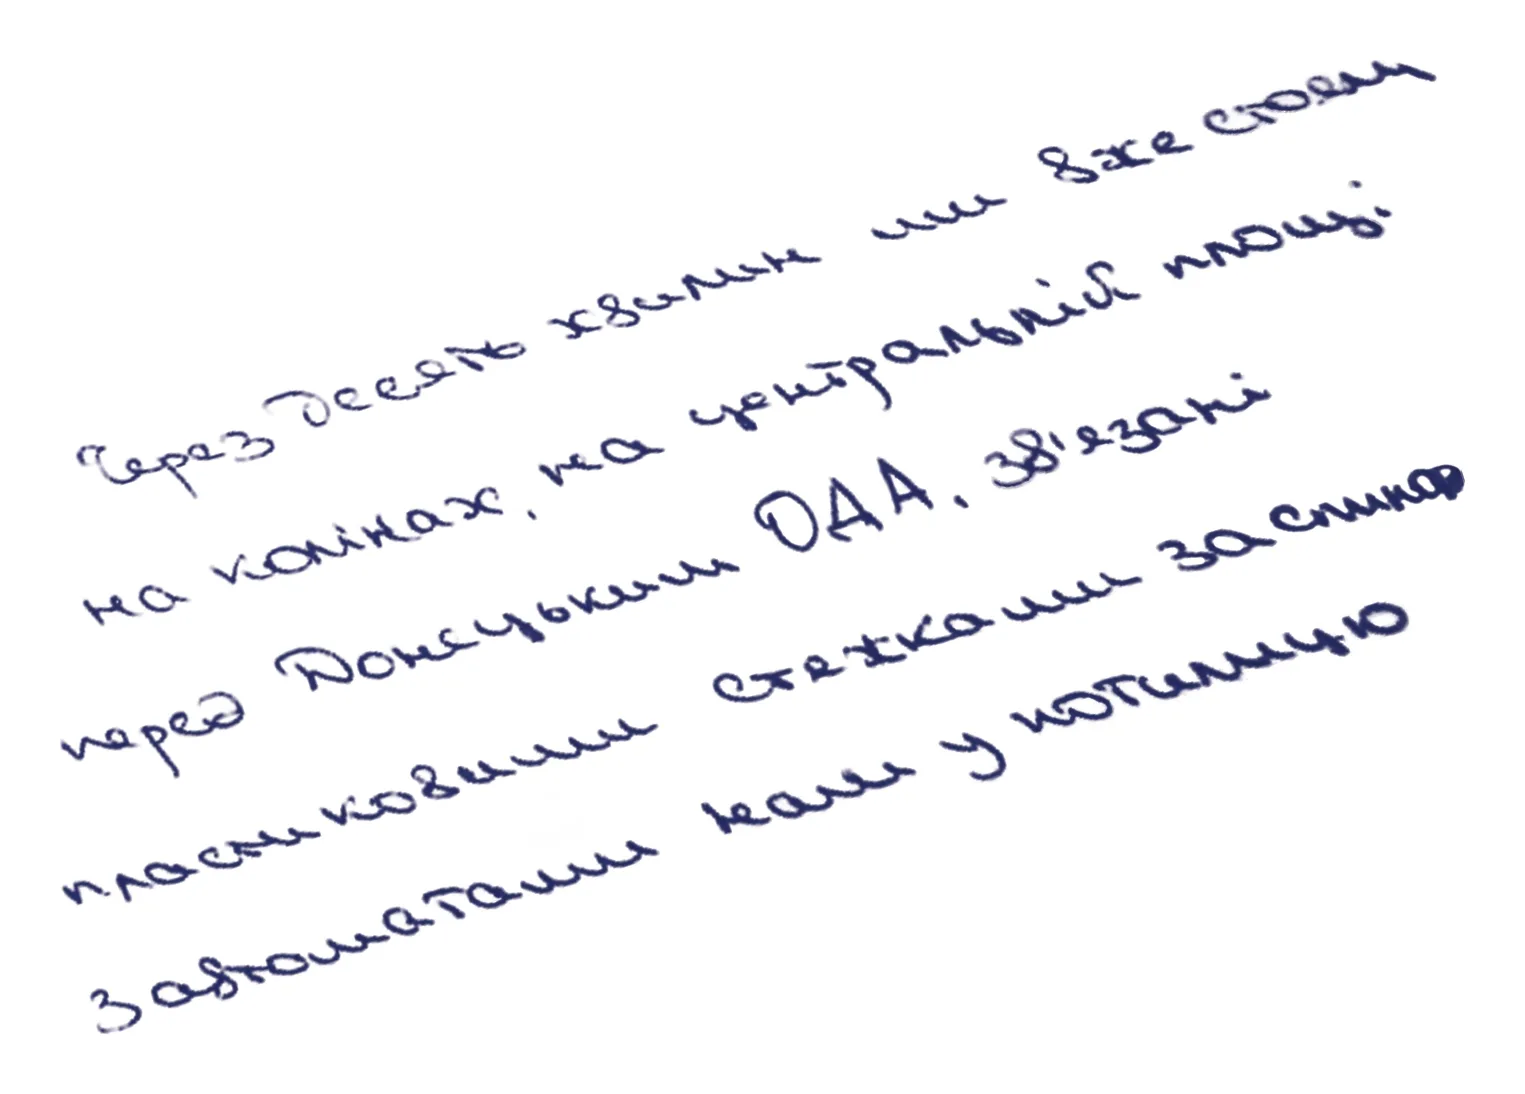 Через десять хвилин ми вже стоєм
на колінах, на центральній площі
перед Донецьким ОДА, зв'язані
пластиковими стяжками за спиною
З автоматами нам у потилицю